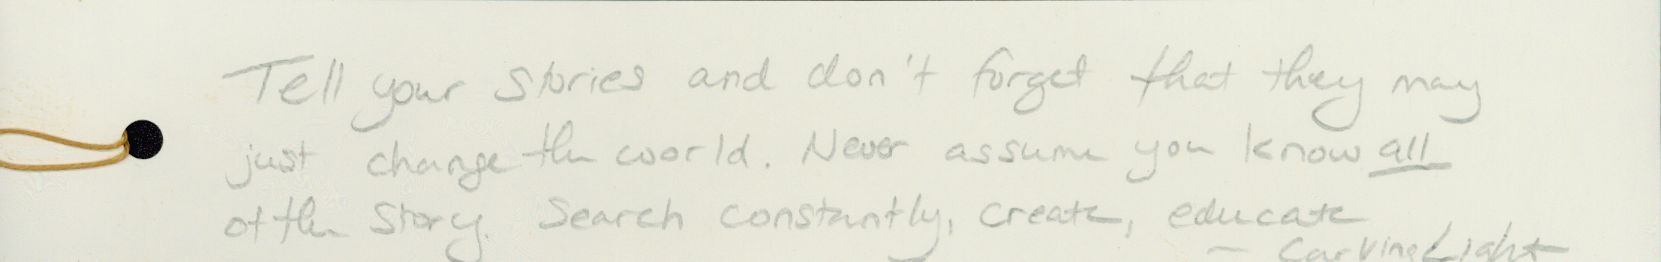 Tell your stories and don't forget that they may
just change the world. Never assume you know all
of the story. Search constantly, create, educate
— Carving Light